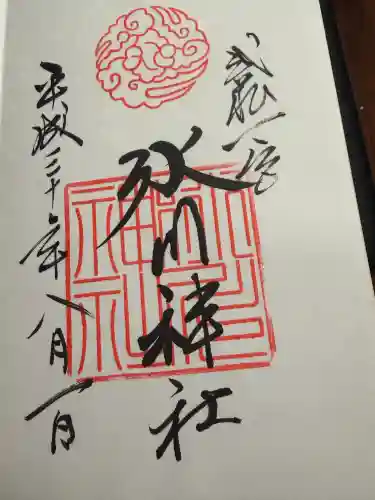 武蔵一宮
氷川神社
平成三十年八月一日
氷川神社